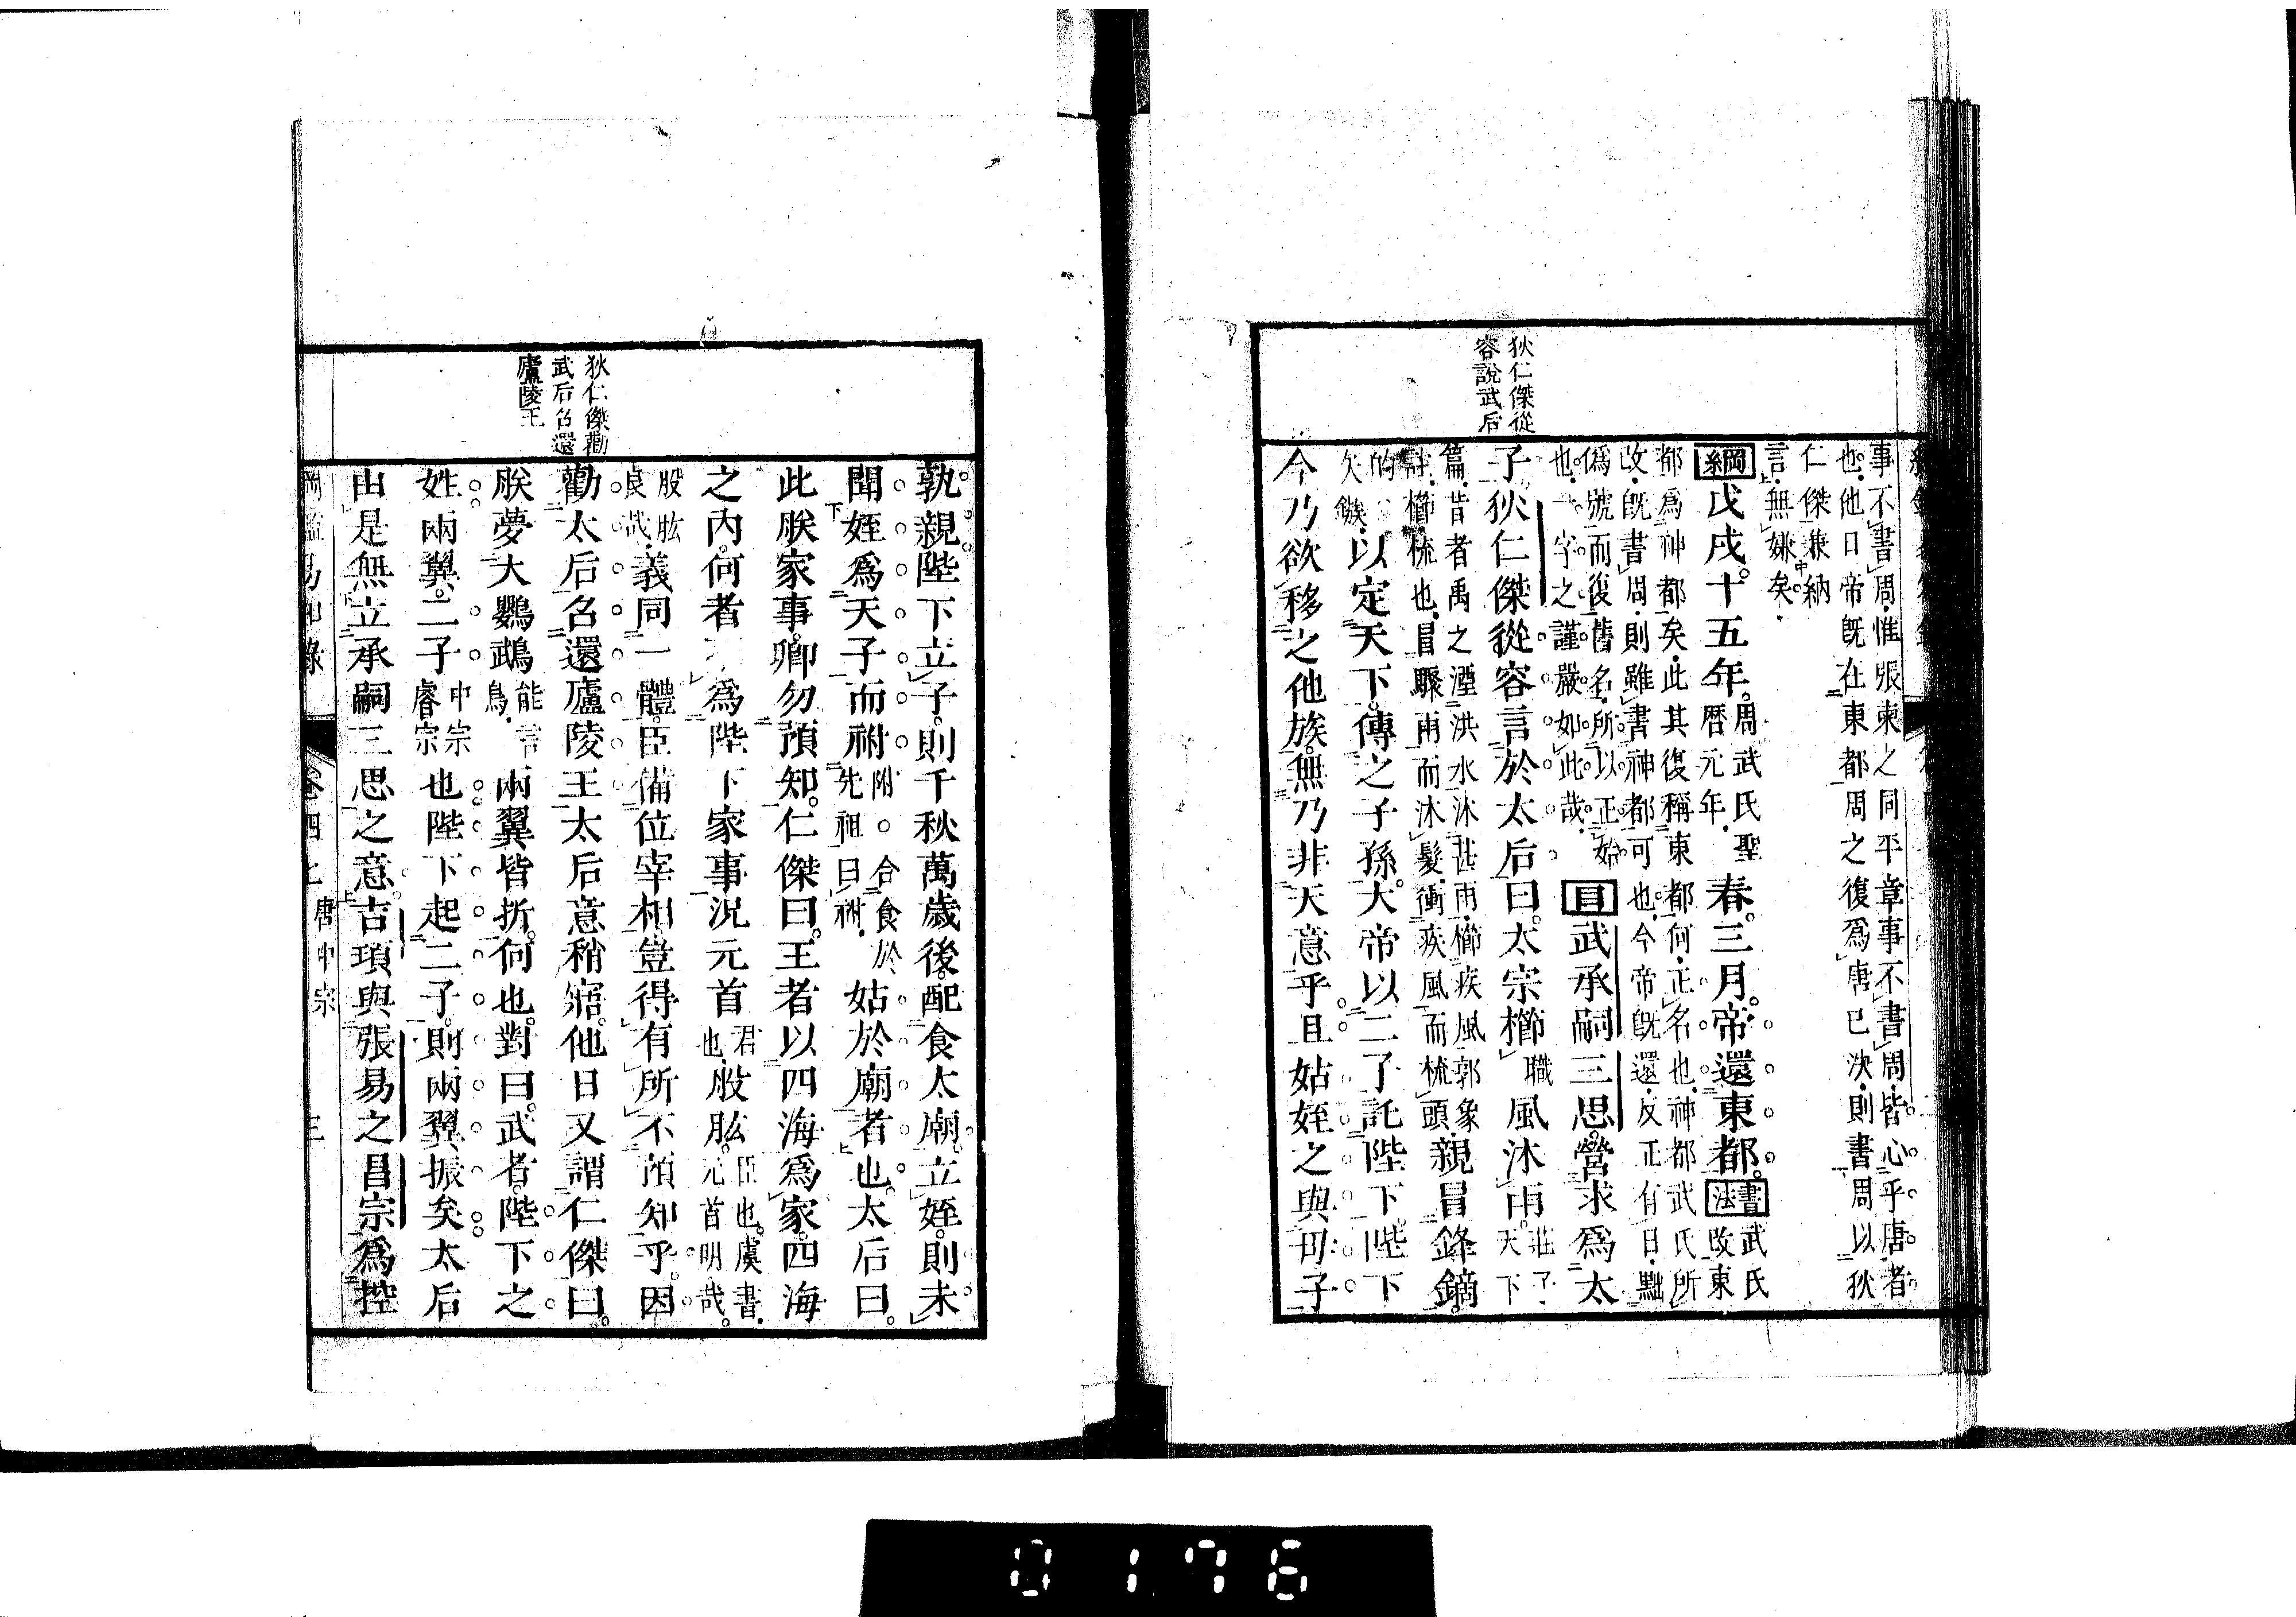 狄仁傑從
容說武后
事不書周惟張柬之同平章事不書周皆心乎唐者
也他日帝既在東都周之復爲唐已決則書周以狄
仁傑兼納
言無嫌矣
綱戊戌十五年周武氏聖
曆元年春三月帝還東都書法武氏
改東
都爲神都矣此其復稱東都何正名也神都武氏所
改既書周則雖書神都可也今帝既還反正有日黜
僞號而復舊名所以正始
也一字之謹嚴如此哉目武承嗣三思營求爲太
子狄仁傑從容言於太后曰太宗櫛職風沐雨莊子
天下
篇昔者禹之湮洪水沐甚雨櫛疾風郭象
註櫛梳也冒驟雨而沐髮衝疾風而梳頭親冒鋒鏑
的
矢鏃以定天下傳之子孫大帝以二子託陛下陛下
今乃欲移之他族無乃非天意乎且姑姪之與母子
狄仁傑勸
武后召還
廬陵王
孰親陛下立子則千秋萬歲後配食太廟立姪則未
聞姪爲天子而祔附合食於
先祖曰祔姑於廟者也太后曰
此朕家事卿勿預知仁傑曰王者以四海爲家四海
之内何者 爲陛下家事況元首君
也股肱臣也虞書
元首明哉
股肱
良哉義同一體臣備位宰相豈得有所不預知乎因
勸太后召還廬陵王太后意稍寤他日又謂仁傑曰
朕夢大鸚鵡能言
鳥兩翼皆折何也對曰武者陛下之
姓兩翼二子中宗
睿宗也陛下起二子則兩翼振矣太后
由是無立承嗣三思之意吉頊與張易之昌宗爲控
綱鑑易知錄 卷四上 唐中宗 三
0176